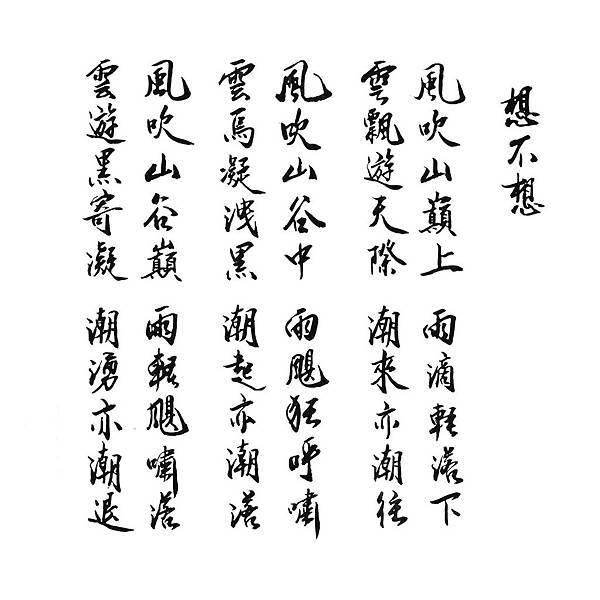 想不想
風吹山巔上 雨滴輕落下
雲飄遊天際 潮來亦潮往
風吹山谷中 雨颶狂呼嘯
雲焉凝洩黑 潮起亦潮落
風吹山谷巔 雨輕颶嘯落
雲遊黑寄凝 潮湧亦潮退